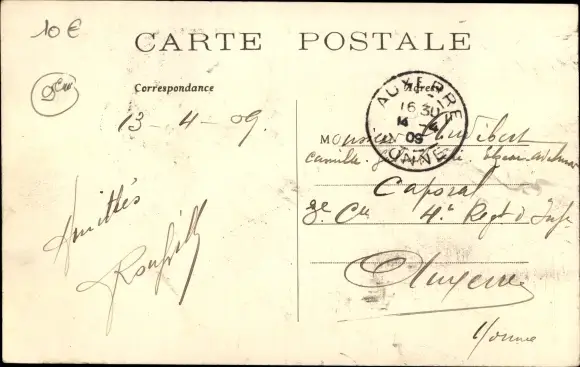 10€
CARTE POSTALE
Correspondance
Adresse
13-4-09.
AUXERRE
16 30
14 -4
09
YONNE
Monsieur
Camille
Caporal
3e Cie 4e Regt d'Inf
Auxerre
Yonne
Amitiés